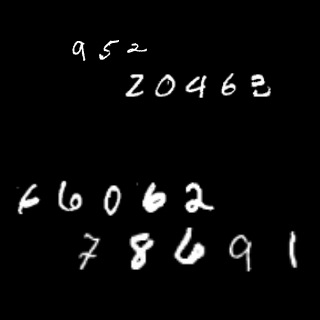 952
20463
66062
78691